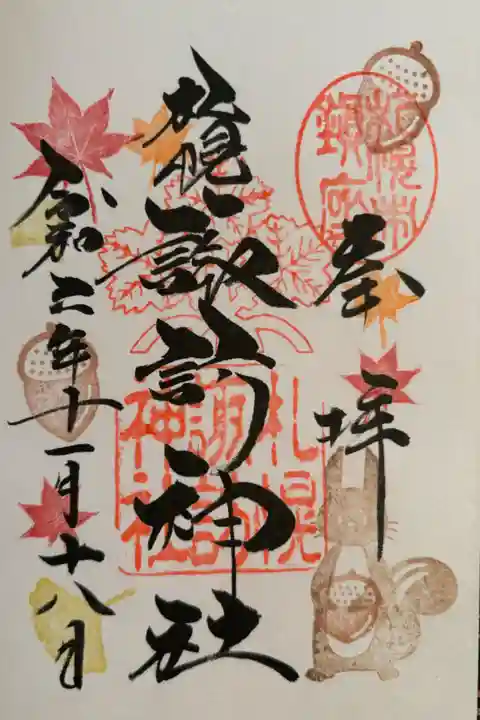 奉拝
札幌諏訪神社
札幌諏訪神社
令和二年十一月十八日